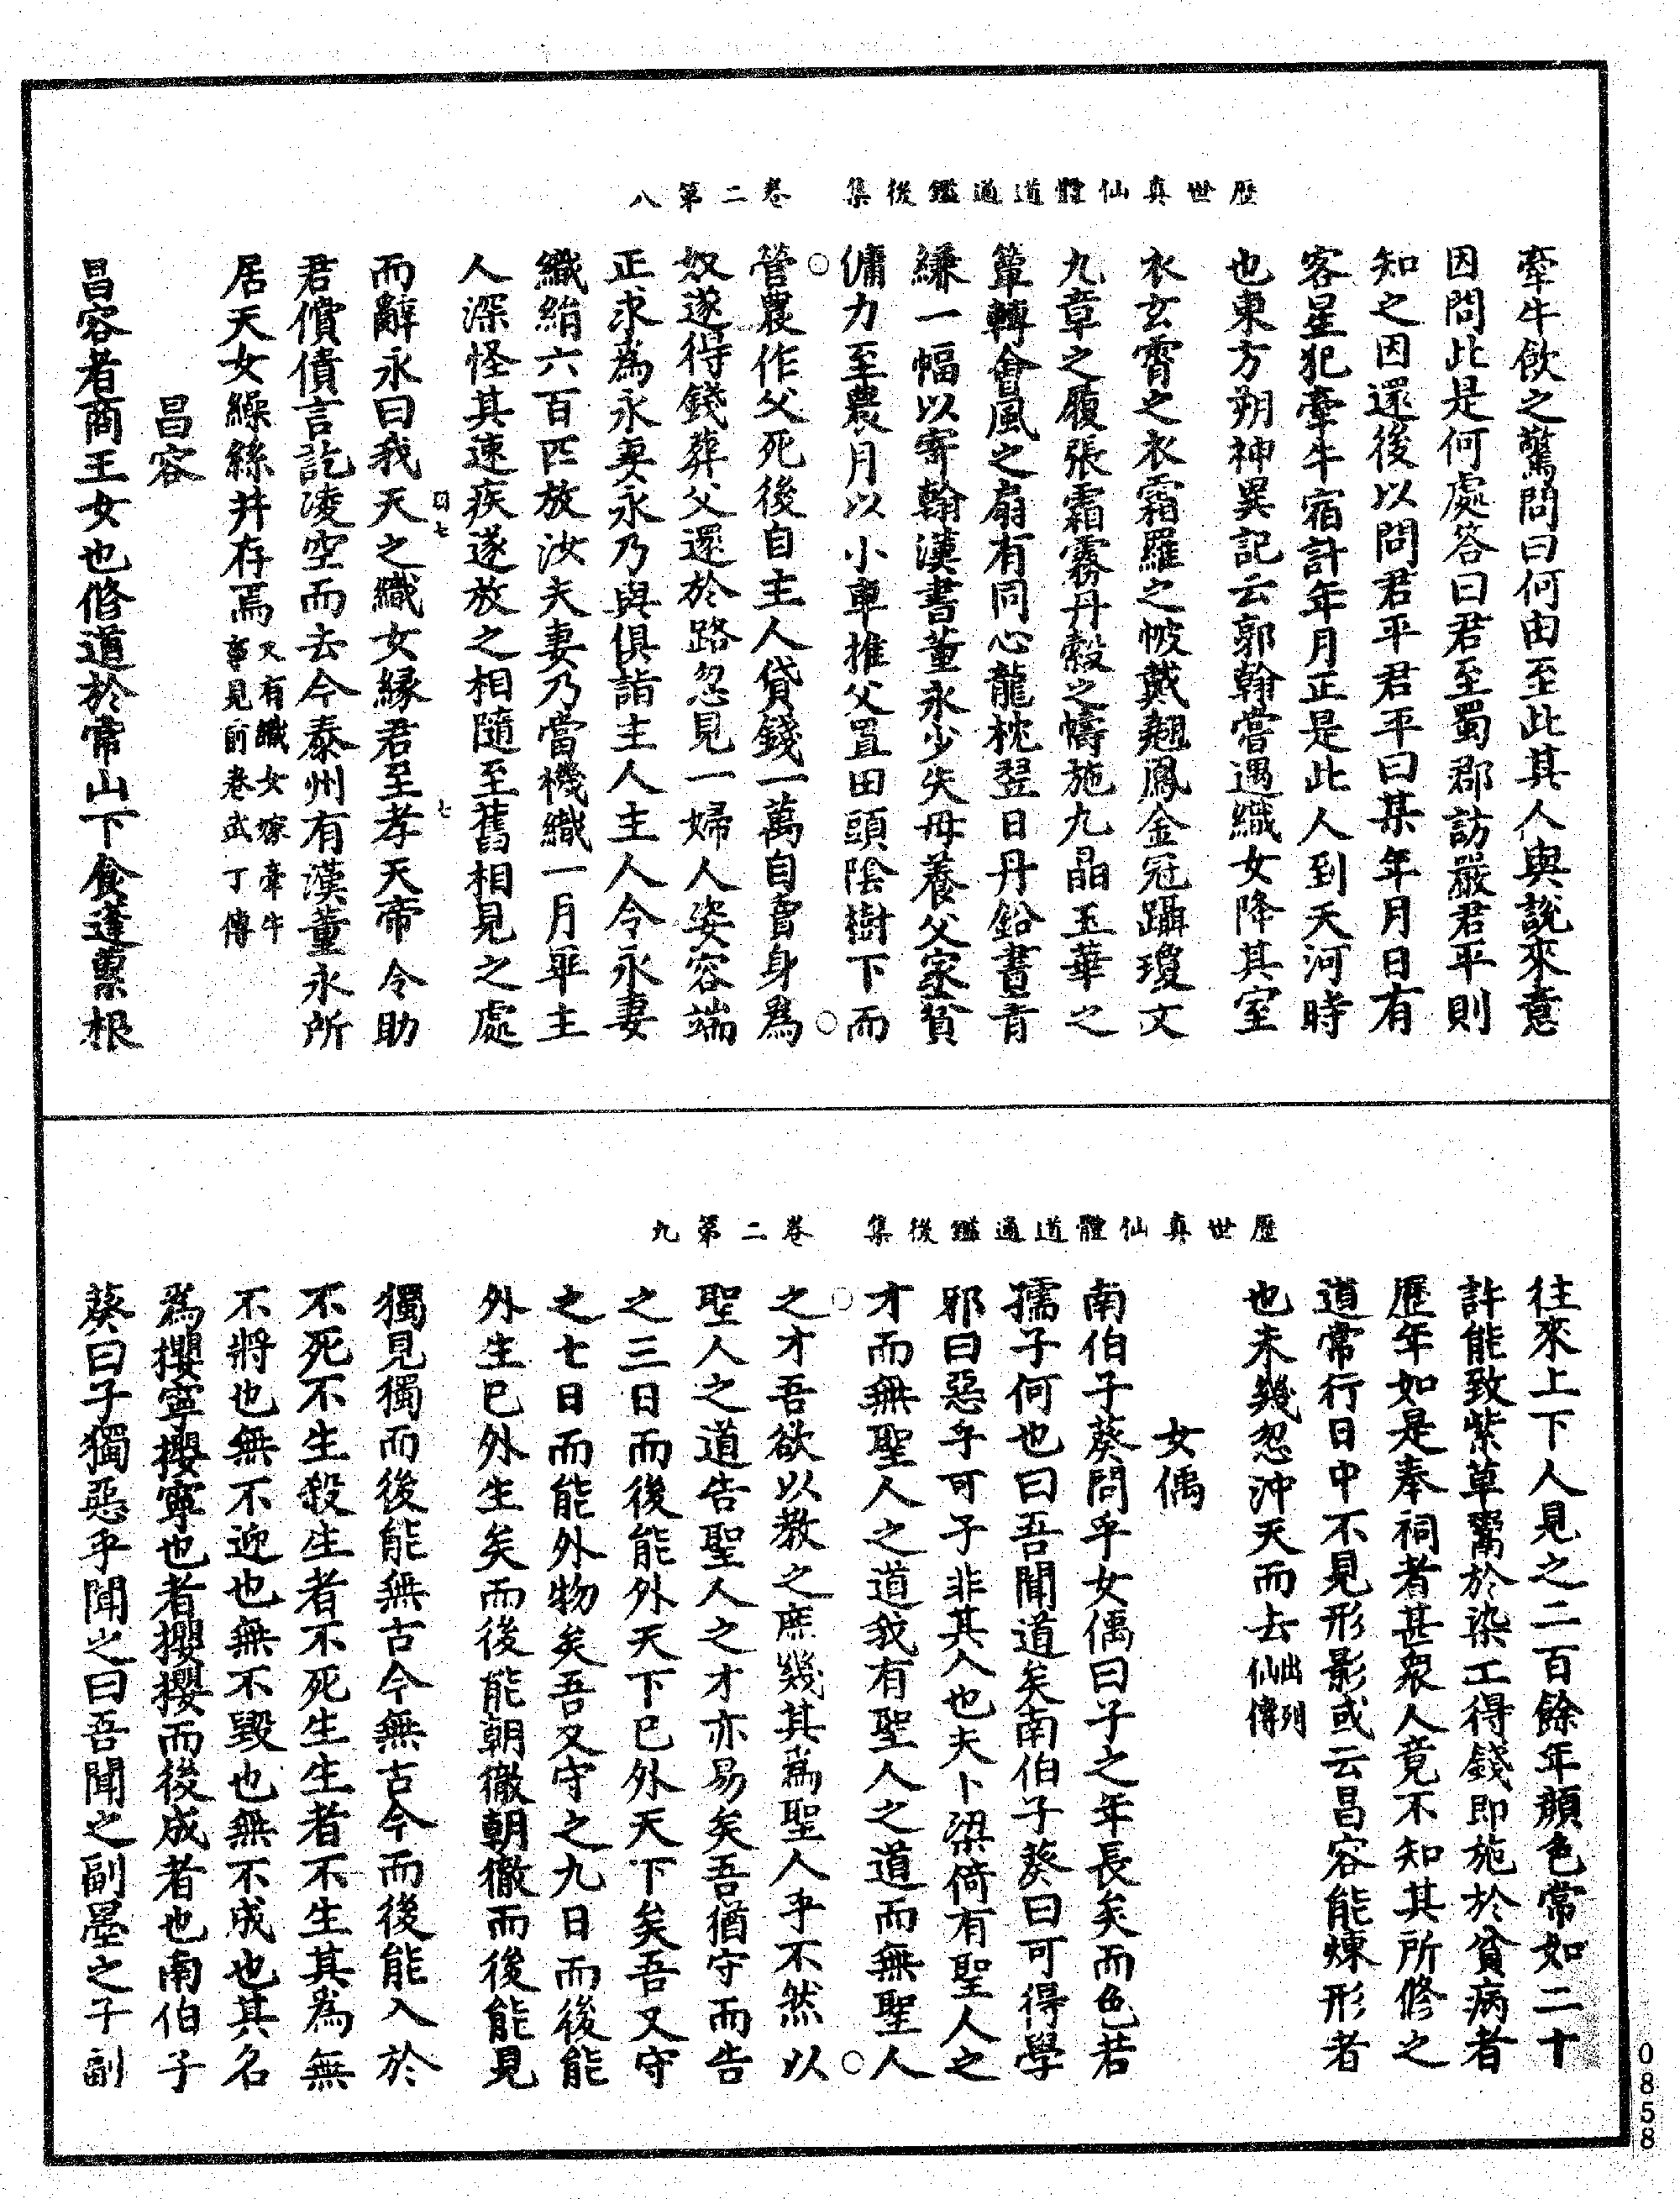 歷世真仙體道通鑑後集　卷二第八
牽牛飲之驚問曰何由至此其人與說來意
因問此是何處荅曰君至蜀郡訪嚴君平則
知之因還後以問君平君平曰某年月日有
客星犯牽牛宿計年月正是此人到天河時
也東方朔神異記云郭翰嘗遇織女降其室
衣玄霄之衣霜羅之帔戴翹鳳金冠躡瓊文
九章之履張霜霧丹縠之幬施九晶玉華之
簟轉會風之扇有同心龍枕翌日丹鉛書青
縑一幅以寄翰漢書董永少失母養父家貧
傭力至農月以小車推父置田頭陰樹下而
營農作父死後自主人貸錢一萬自賣身為
奴遂得錢葬父還於路忽見一婦人姿容端
正求為永妻永乃與俱詣主人主人令永妻
織絹六百匹放汝夫妻乃當機織一月畢主
人深怪其速疾遂放之相隨至舊相見之處
而辭永曰我天之織女緣君至孝天帝令助
君償債言訖凌空而去今泰州有漢董永所
居天女繰絲井存焉又有織女嫁牽牛事見前卷武丁傳
昌容
昌容者商王女也修道於常山下食蓬虆根
歷世真仙體道通鑑後集　卷二第九
往來上下人見之二百餘年顏色常如二十
許能致紫草鬻於染工得錢即施於貧病者
歷年如是奉祠者甚衆人竟不知其所修之
道常行日中不見形影或云昌容能煉形者
也未幾忽沖天而去出列仙傳
女偊
南伯子葵問乎女偊曰子之年長矣而色若
孺子何也曰吾聞道矣南伯子葵曰可得學
邪曰惡乎可子非其人也夫卜梁倚有聖人之
才而無聖人之道我有聖人之道而無聖人
之才吾欲以教之庶幾其為聖人乎不然以
聖人之道告聖人之才亦易矣吾猶守而告
之三日而後能外天下已外天下矣吾又守
之七日而能外物矣吾又守之九日而後能
外生已外生矣而後能朝徹朝徹而後能見
獨見獨而後能無古今無古今而後能入於
不死不生殺生者不死生生者不生其為無
不將也無不迎也無不毀也無不成也其名
為攖寧攖寧也者攖攖而後成者也南伯子
葵曰子獨惡乎聞之曰吾聞之副墨之子副
0858